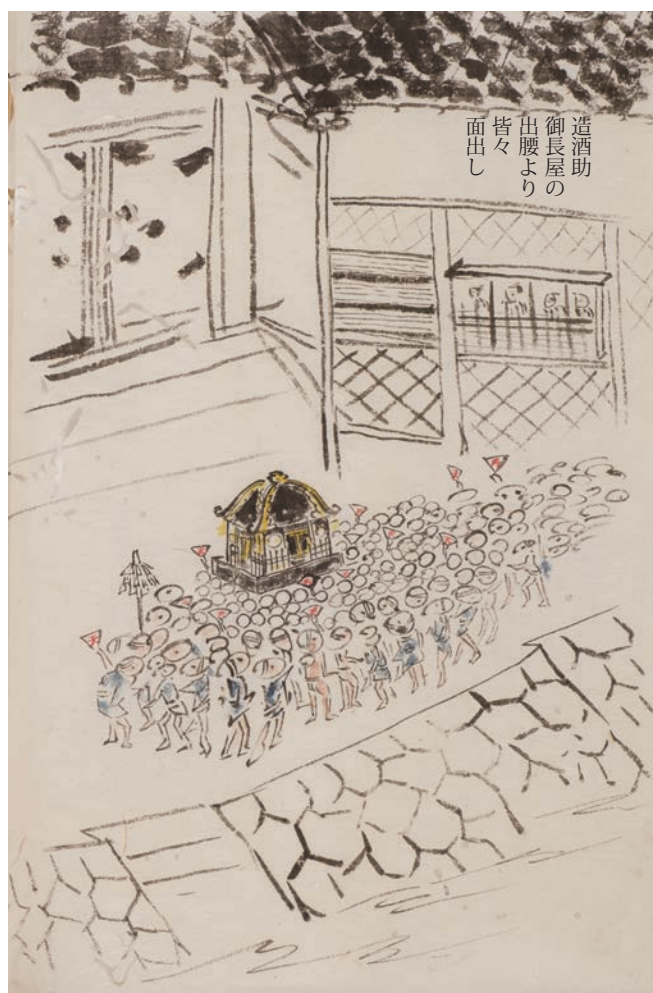 造酒助
御長屋の
出腰より
皆々
面出し